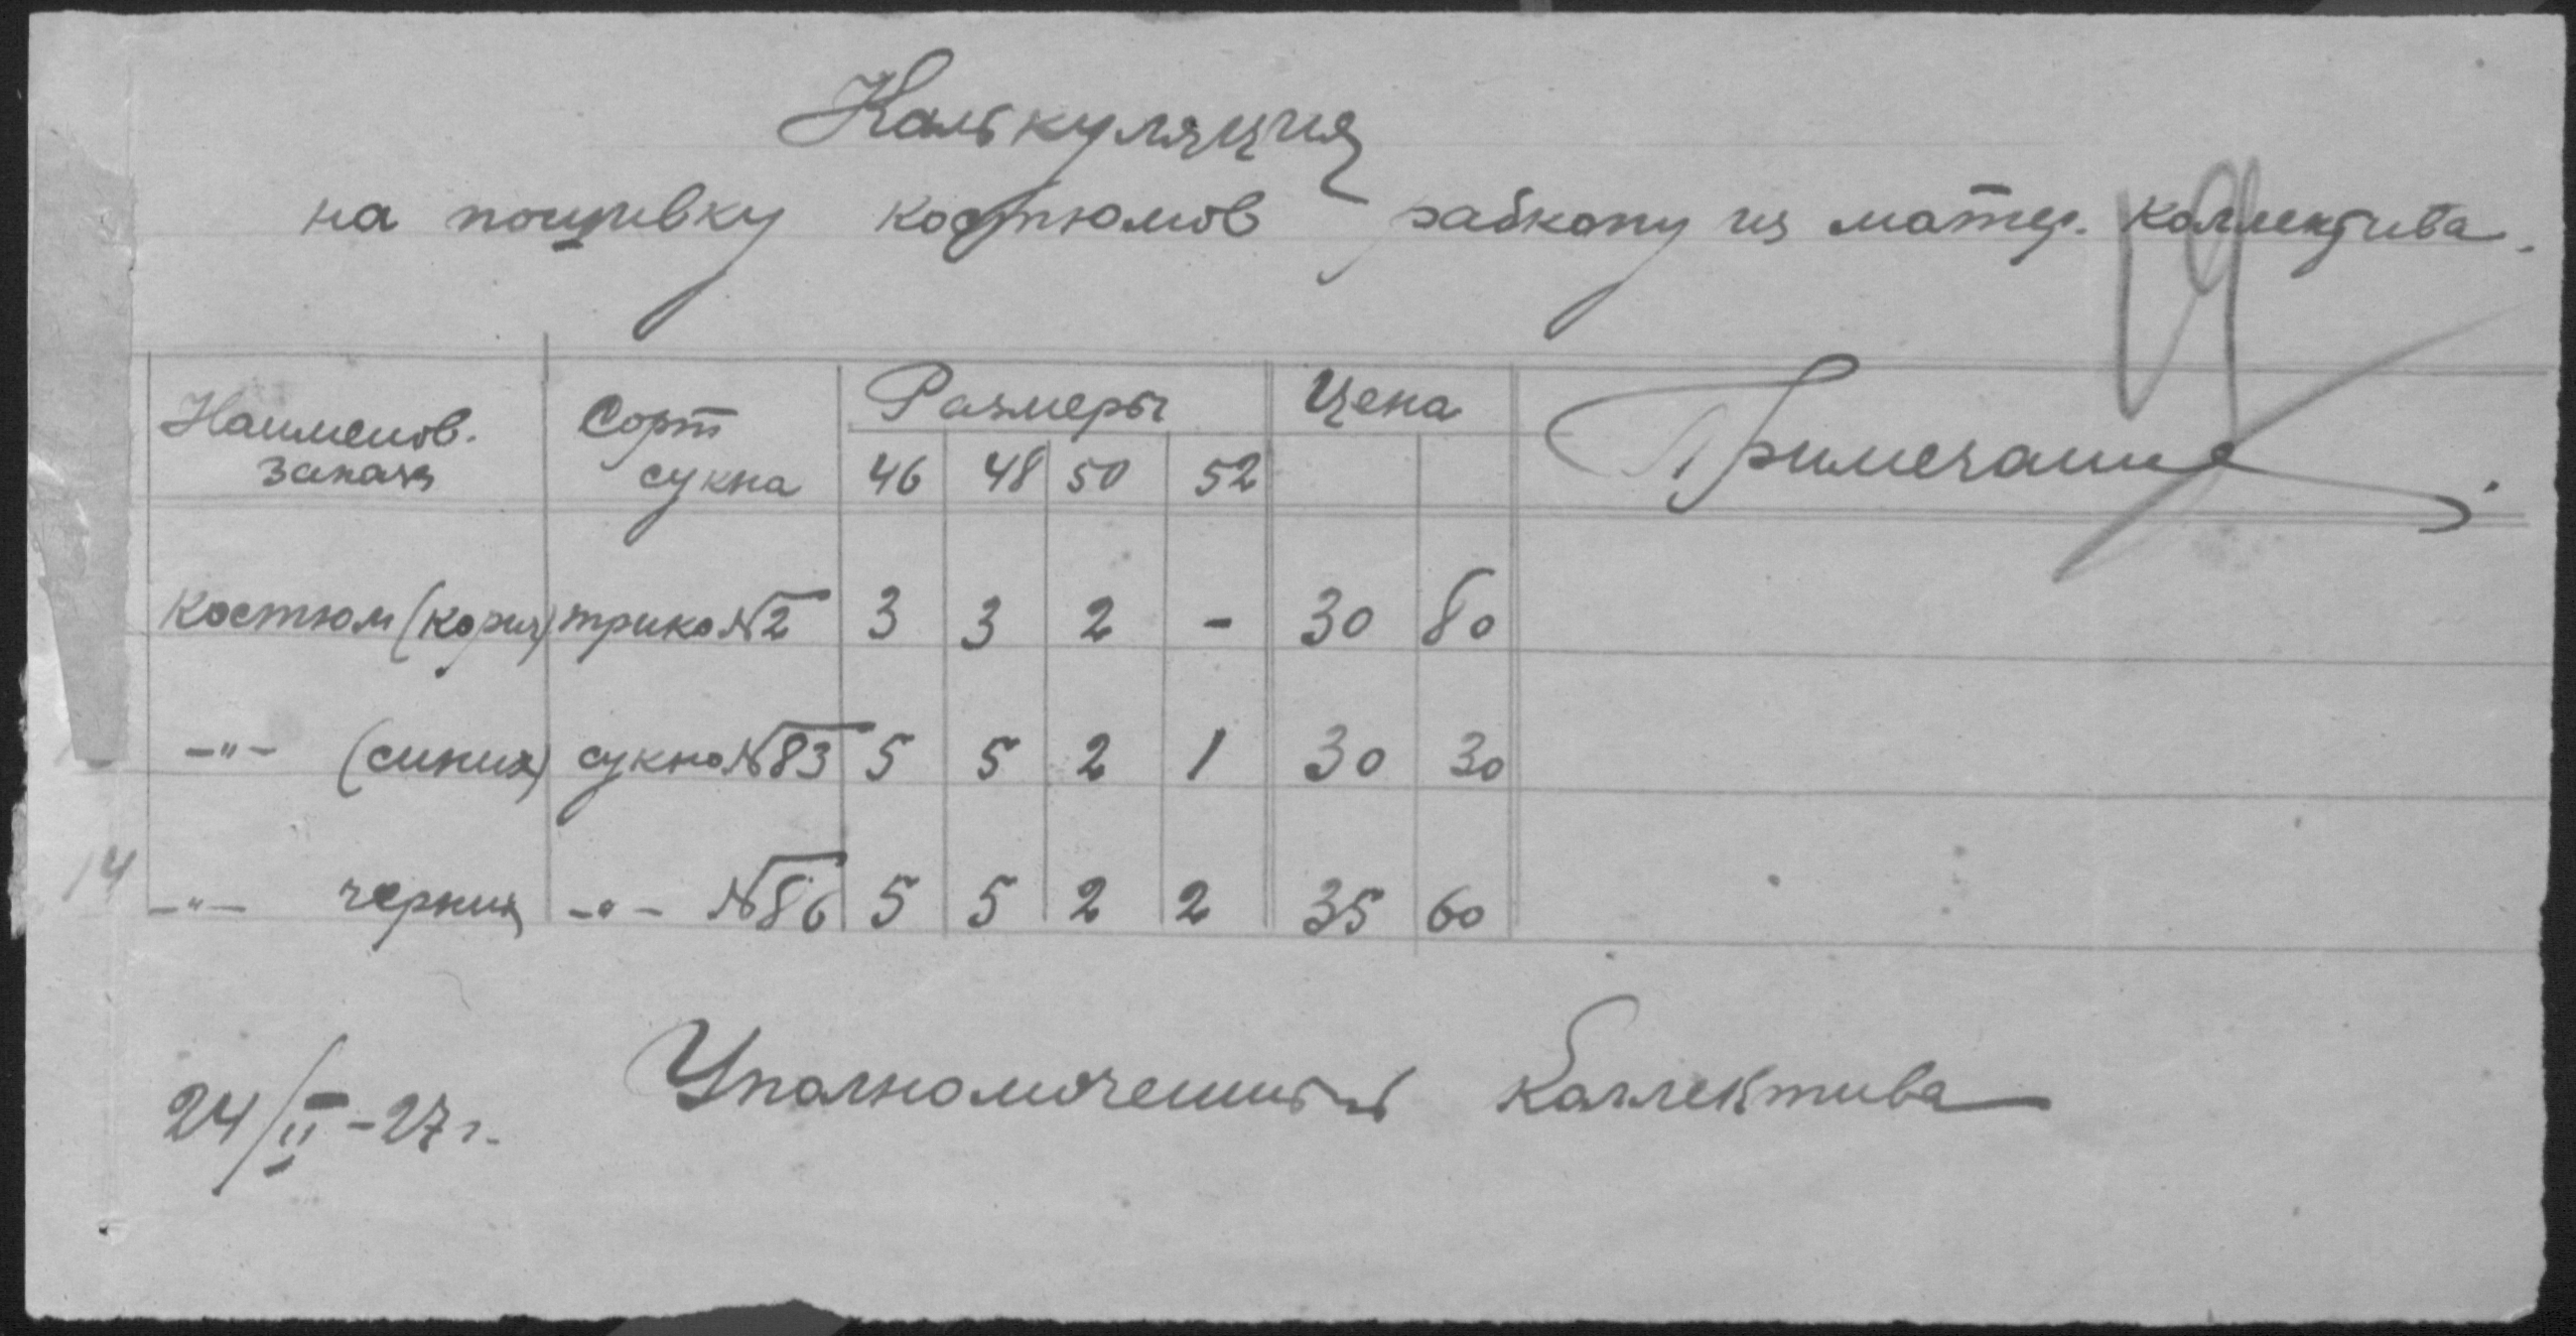 Калькуляция
на пошивку костюмов рабкопу из матер. коллектива.
Наименов. заказа Сорт сукна Размеры Цена Примечание
46 48 50 52
Костюм (корич) трико №2 3 3 2 - 30 80
-"- (синих) сукно №83 5 5 2 1 30 30
14 -"- черных -"- №86 5 5 2 2 35 60
24/II-27г. Уполномоченный Коллектива